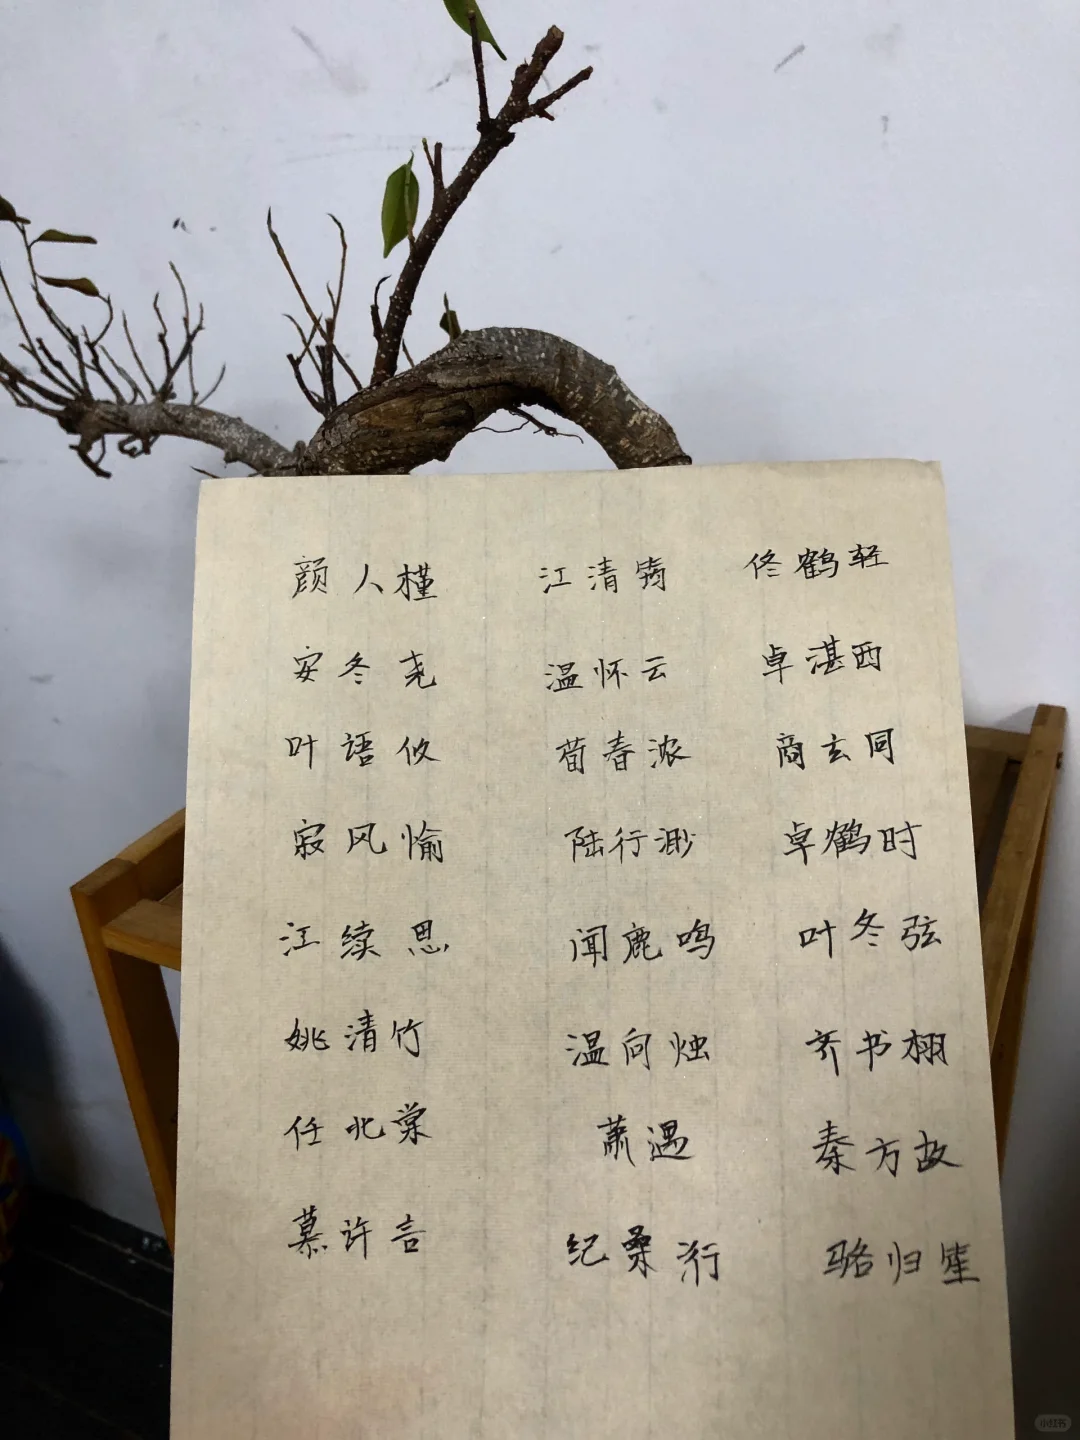 颜人槿 江清筠 佟鹤轻
安冬尧 温怀云 卓湛西
叶语攸 荀春浓 商玄同
寂风愉 陆行渺 卓鹤时
江续思 闻鹿鸣 叶冬弦
姚清竹 温向烛 齐书栩
任北棠 萧遇 秦方故
慕许言 纪桑洐 骆归笙
小红书